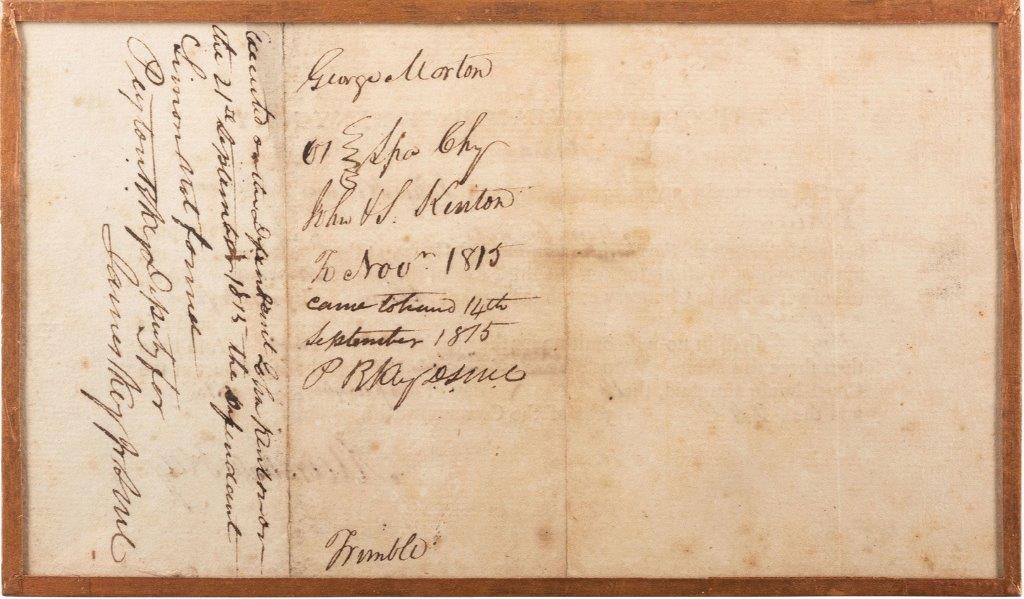 George Morton
vs } Spa Chy
John & S. Kenton
To Novr 1815
came to hand 14th
September 1815
P R Key DSMC
Trimble
Executed on the defendant John Kenton on
the 21st September 1815 the defendant
Simon Not found
Peyton R Key Deputy for
James Key Jr SMC